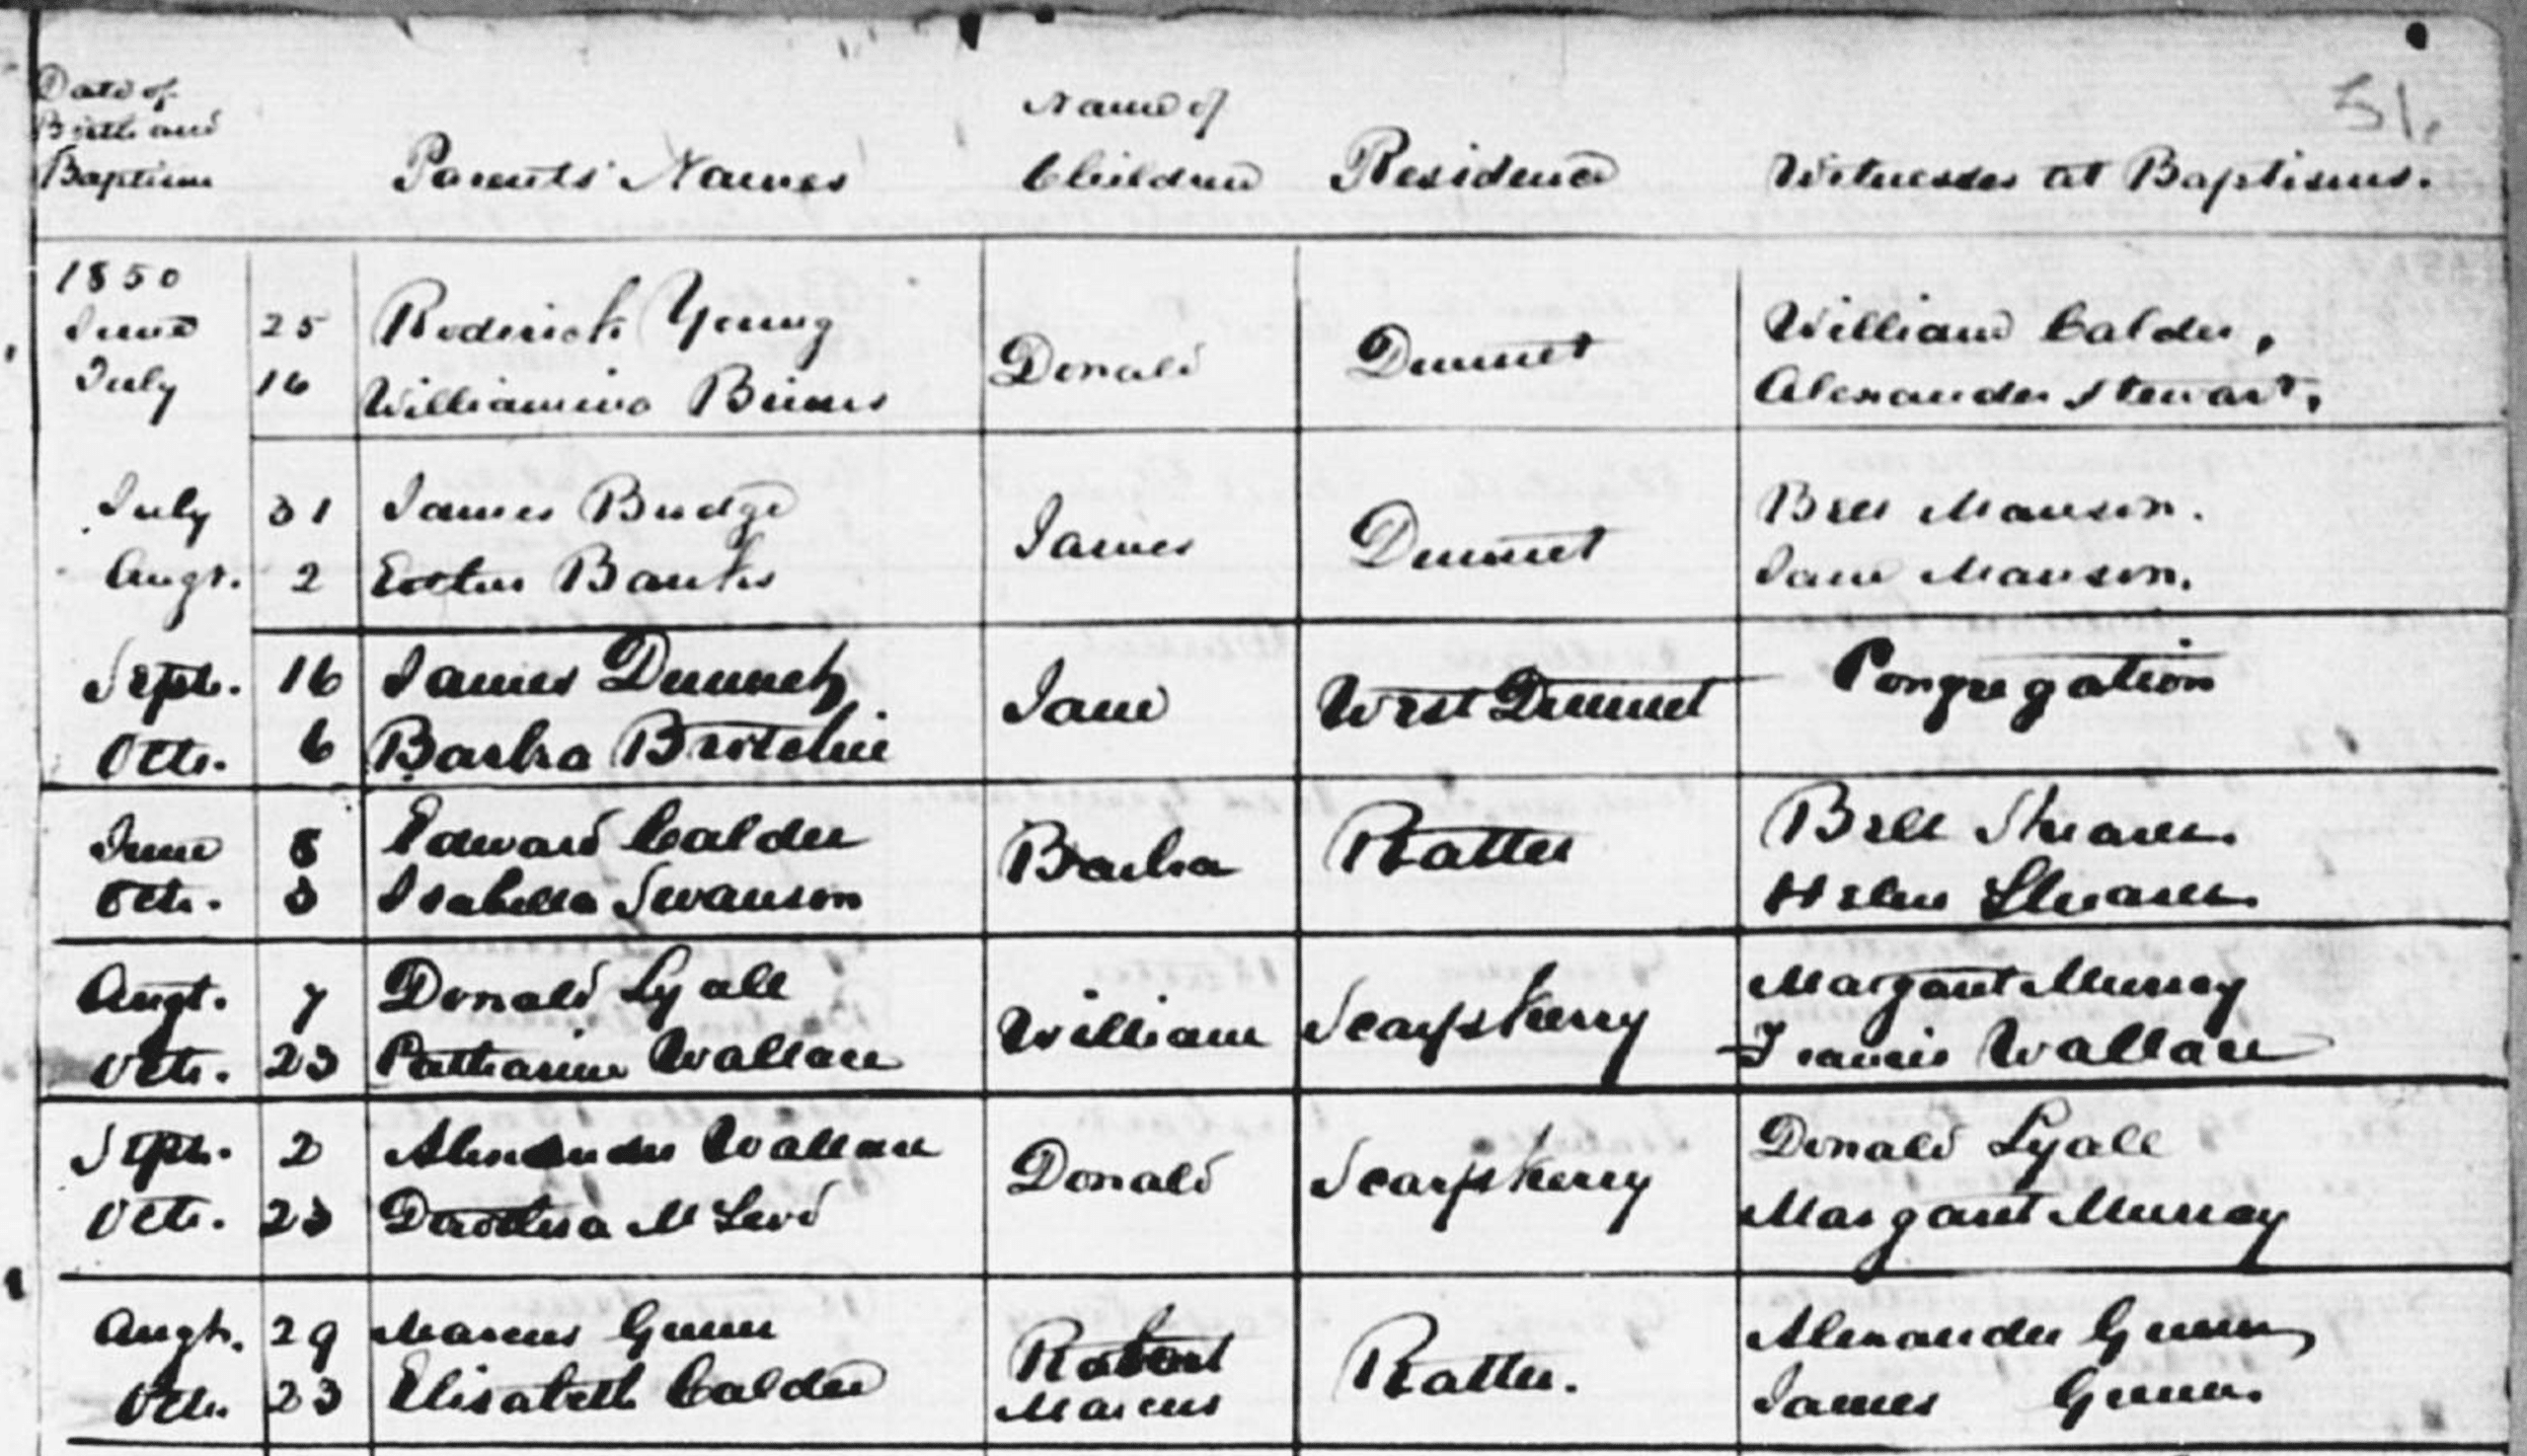 51.
Date of
Birth and
Baptism
Parents' Names
Name of
Children
Residence
Witnesses at Baptisms.
1850
June 25 Roderick Young
July 16 Williamina Brims
Donald
Dunnet
William Calder,
Alexander Stewart,
July 31 James Budge
Augt. 2 Esther Banks
James
Dunnet
Bell Manson.
Jane Manson.
Sept. 16 James Dunnet
Octr. 6 Barbra Brotchie
Jane
West Dunnet
Congregation
June 8 Edward Calder
Octr. 3 Isabella Swanson
Barbra
Ratter
Bell Shearer.
Helen Shearer.
Augt. 7 Donald Lyall
Octr. 23 Catharine Wallace
William
Scarfskerry
Margaret Murray
Francis Wallace
Sept. 2 Alexander Wallace
Octr. 23 Dorothea McLeod
Donald
Scarfskerry
Donald Lyall
Margaret Murray
Augt. 29 Marcus Gunn
Octr. 23 Elisabeth Calder
Robert
Marcus
Ratter.
Alexander Gunn
James Gunn.